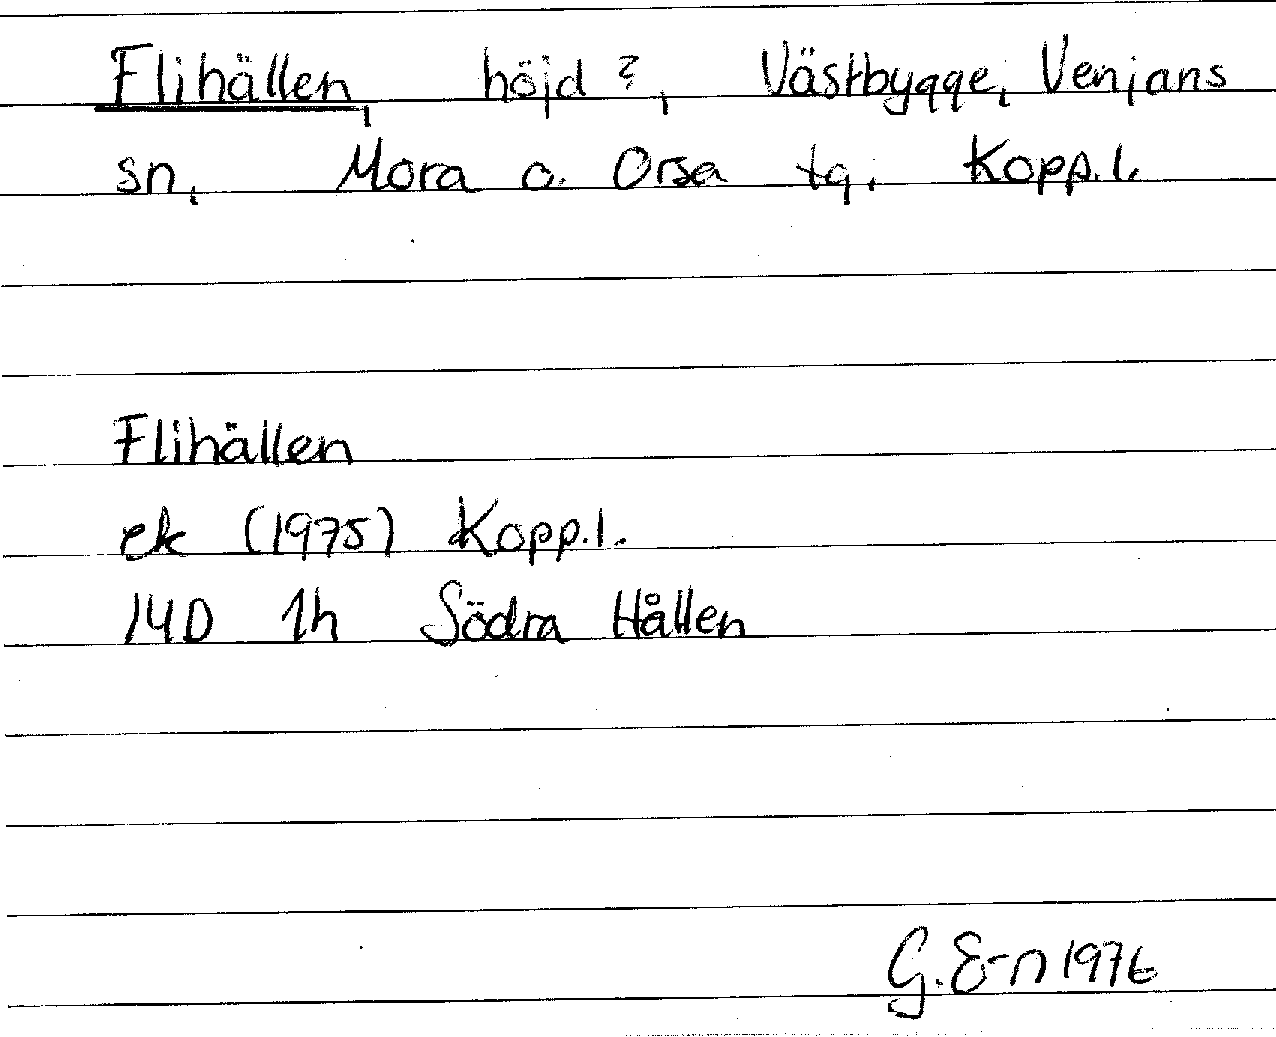 Flihällen, höjd?, Västbygge, Venjans
sn, Mora o. Orsa tg. Kopp.l.
Flihällen
ek (1975) Kopp.l.
14D 1h Södra Hållen
G. E-n 1976